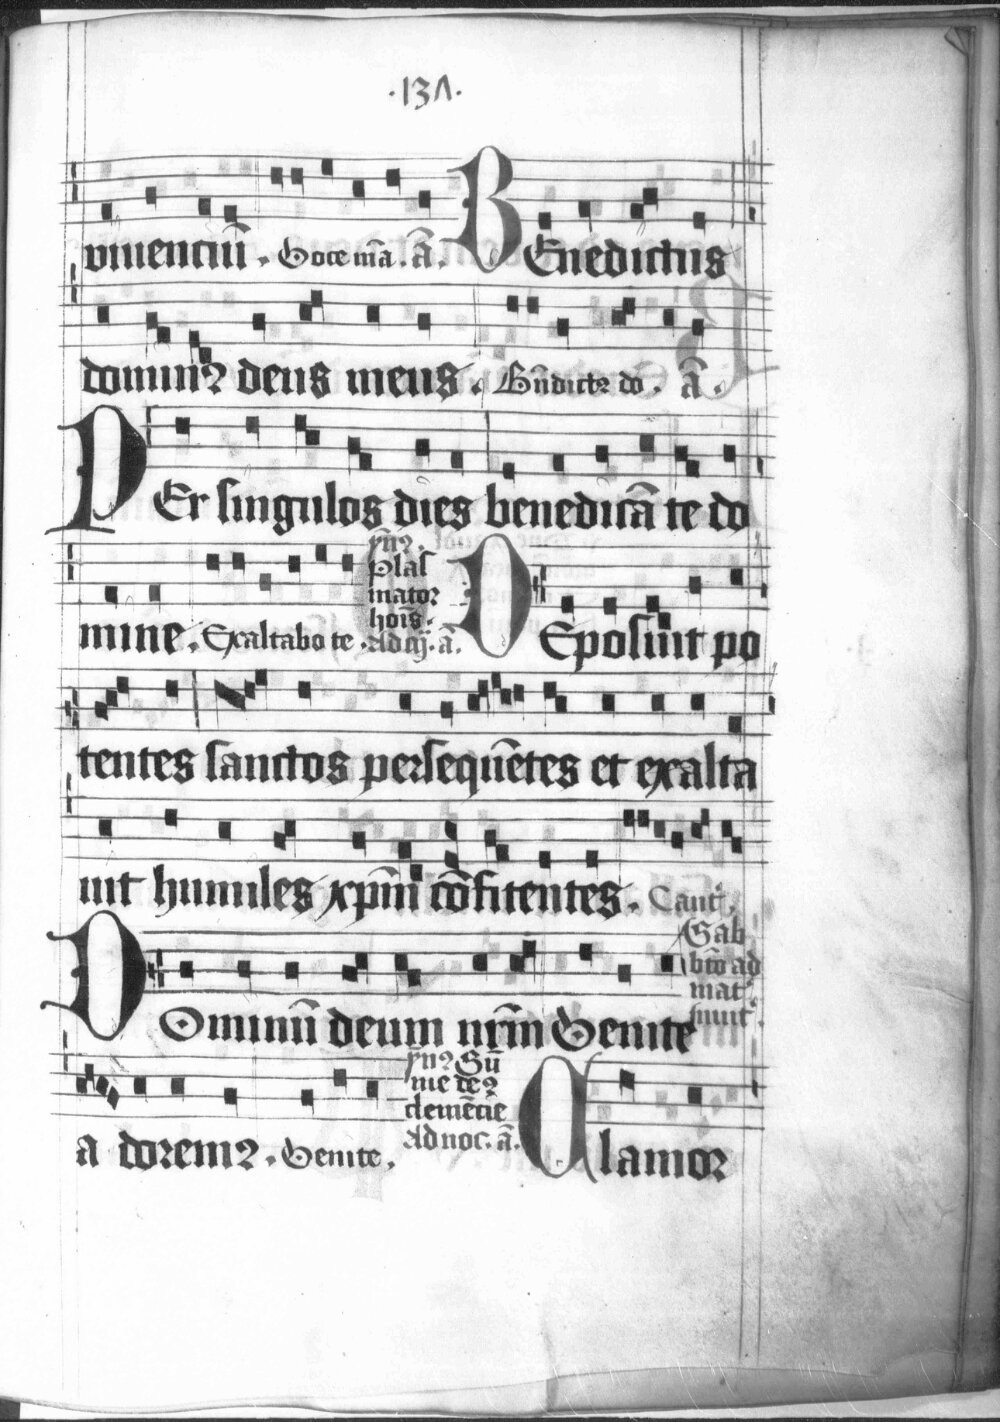 ·137·
viuenciũ. Uoce mã. ã. BEnedictus
dominꝰ deus meus. Bñdictꝰ do. ã.
PEr singulos dies benedicã te do
mine. Exaltabo te. ymꝰ. Plasmator hoĩs. Ad m̃. ã. DEposuit po
tentes sanctos persequẽtes et exalta
uit humiles xp̃m cõfitentes. Cant̃.
Sabbto ad mat̃.
DOminũ deum nr̃m Uenite
a doremꝰ. Uenite. ymꝰ Sũme deꝰ clemẽcie Ad noc. ã. Clamor